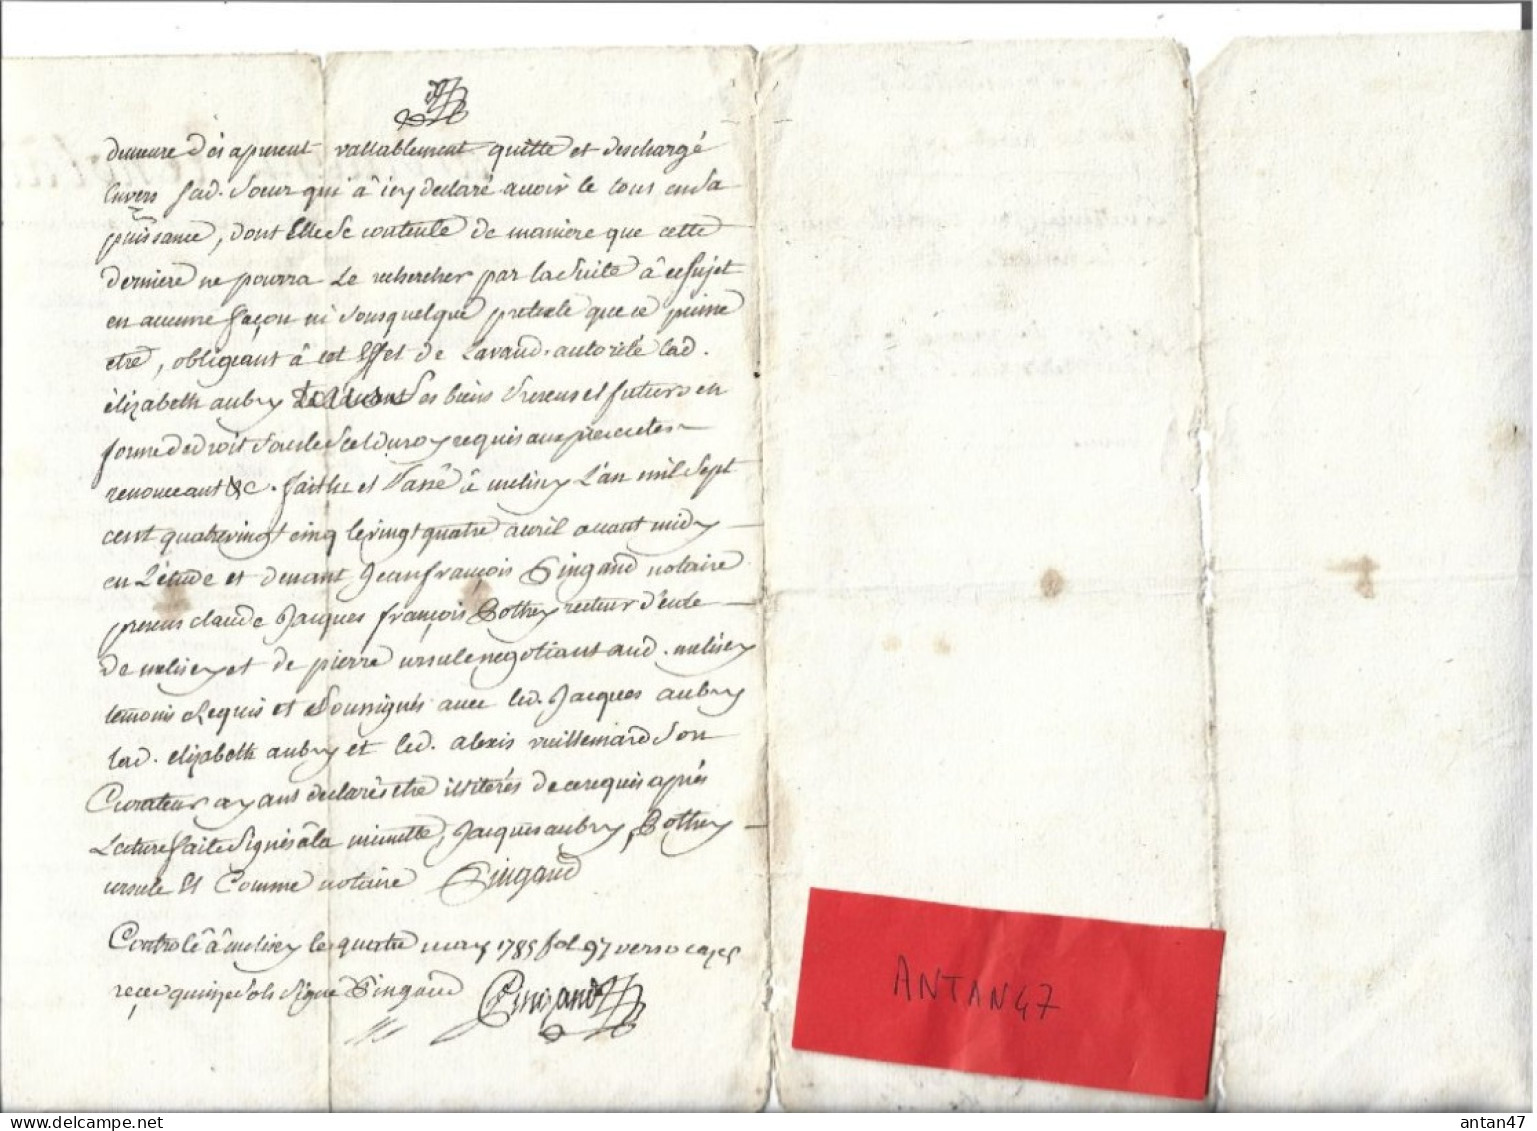 demeure d'es apresent vallablement quitte et deschargé
Envers lad. Soeur qui â icy declaré avoir le tout en sa
puissance, dont Elle Se contente de maniere que cette
derniere ne pourra Le rechercher par la Suite â ce Sujet
en aucune façon ni Sous quelque pretexte que ce puisse
etre, obligeant â cet Effet de Lavand. autorité lad.
élizabeth aubry Ses biens Presens et futurs en
forme de droit Sous le Scel du roy requis aux presentes
renonceant &c. fait lu et Passé â melisey L'an mil Sept
cent quatre vingt cinq le vingt quatre avril avant midy
en L'étude et devant Jean françois Pingand notaire
presens claude Jacques françois Bothey recteur d'ecole
de melisey et de pierre ursule negotiant aud. melisey
temoins Requis et Soussignés avec led. Jacques aubry
lad. elizabeth aubry et led. alexis vuillemard Son
Curateur ayans declarés etre illiterés de ce requis après
Lecture faite Signés â la minutte, Jacques aubry, Bothey
ursule Et Comme notaire Pingand
Controlé â melisey le quatre may 1785 fol 97 verso
reçeu quinze sols Signé Pingand Pingand
ANTAN47
antan47